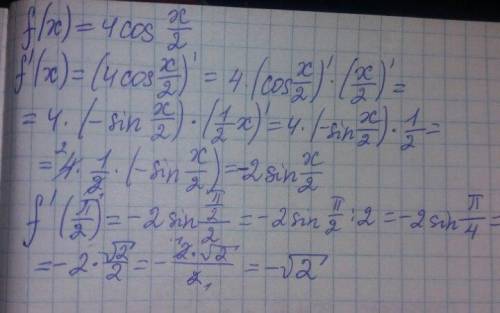 f(x) = 4cos x/2
f'(x) = (4cos x/2)' = 4·(cos x/2)'·(x/2)' =
= 4·(-sin x/2)·(1/2 x)' = 4·(-sin x/2)·1/2 =
= ²4·1/2·(-sin x/2) = -2sin x/2
f'(π/2) = -2sin (π/2)/2 = -2sin π/2 : 2 = -2sin π/4 =
= -2·√2/2 = - 2·√2/2 = -√2